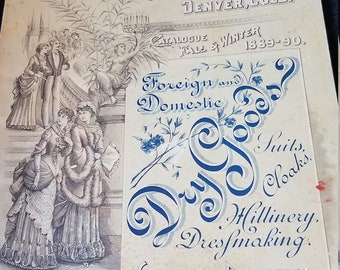 Denver, Colo.
Catalogue
Fall & Winter
1889-90.
Foreign and
Domestic
Dry Goods
Suits,
Cloaks,
Millinery.
Dressmaking.